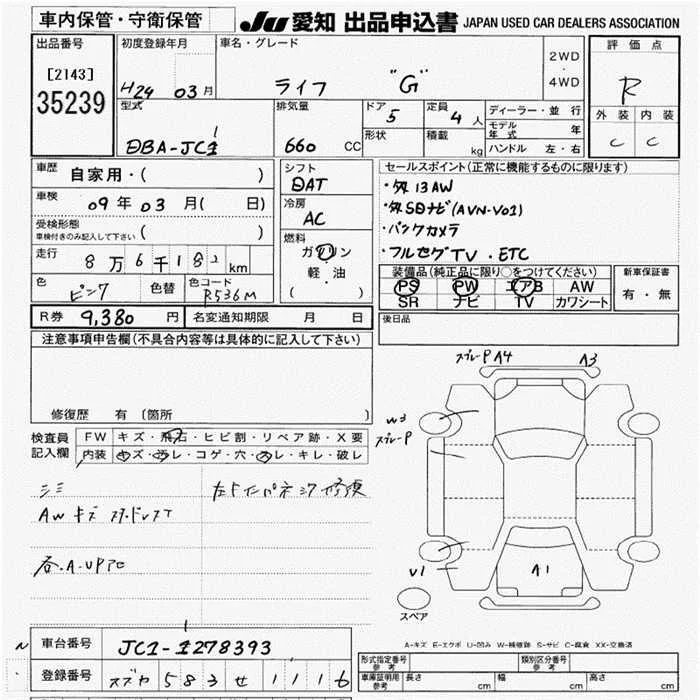 車内保管・守衛保管 JU 愛知 出品申込書 JAPAN USED CAR DEALERS ASSOCIATION
出品番号 初度登録年月 車名・グレード 2WD・4WD 評価点
[2143] 35239 H24 03月 ライフ "G" R
外装 内装
C C
型式 排気量 ドア 定員 ディーラー・並行
DBA-JC1 660 CC 5 4人 モデル年式 年
形状 積載 kg ハンドル 左・右
車歴 自家用・( ) シフト DAT セールスポイント(正常に機能するものに限ります)
車検 09年03月( 日) 冷房 AC
・外13AW
・外SDナビ(AVN-V01)
・バックカメラ
・フルセグTV・ETC
受検形態 車検付きのみ記入して下さい ( ) 燃料 ガソリン 軽・油 ( )
走行 8万6千182km
装備品(純正品に限り○をつけてください) 新車保証書
PS PW エアB AW 有・無
SR ナビ TV カワシート
色 ピンク 色替 色コード R536M
R券 9,380円 名変通知期限 月 日 後日品
注意事項申告欄(不具合内容等は具体的に記入して下さい)
修復歴 有 [箇所 ]
検査員記入欄 FW キズ・飛石・ヒビ割・リペア跡・X要
内装 キズ・汚レ・コゲ・穴・スレ・キレ・破レ
スプレーP A4 A3
W3
スプレーP
シミ
AWキズ
V1 A1
スペア
A-キズ E-エクボ U-凹み W-補修跡 S-サビ C-腐食 XX-交換済
車台番号 JC1-1278393
登録番号 583 せ 1116
形式指定番号 参考 類別区分番号 参考
車庫証明用 参考 長さ cm 幅 cm 高さ cm